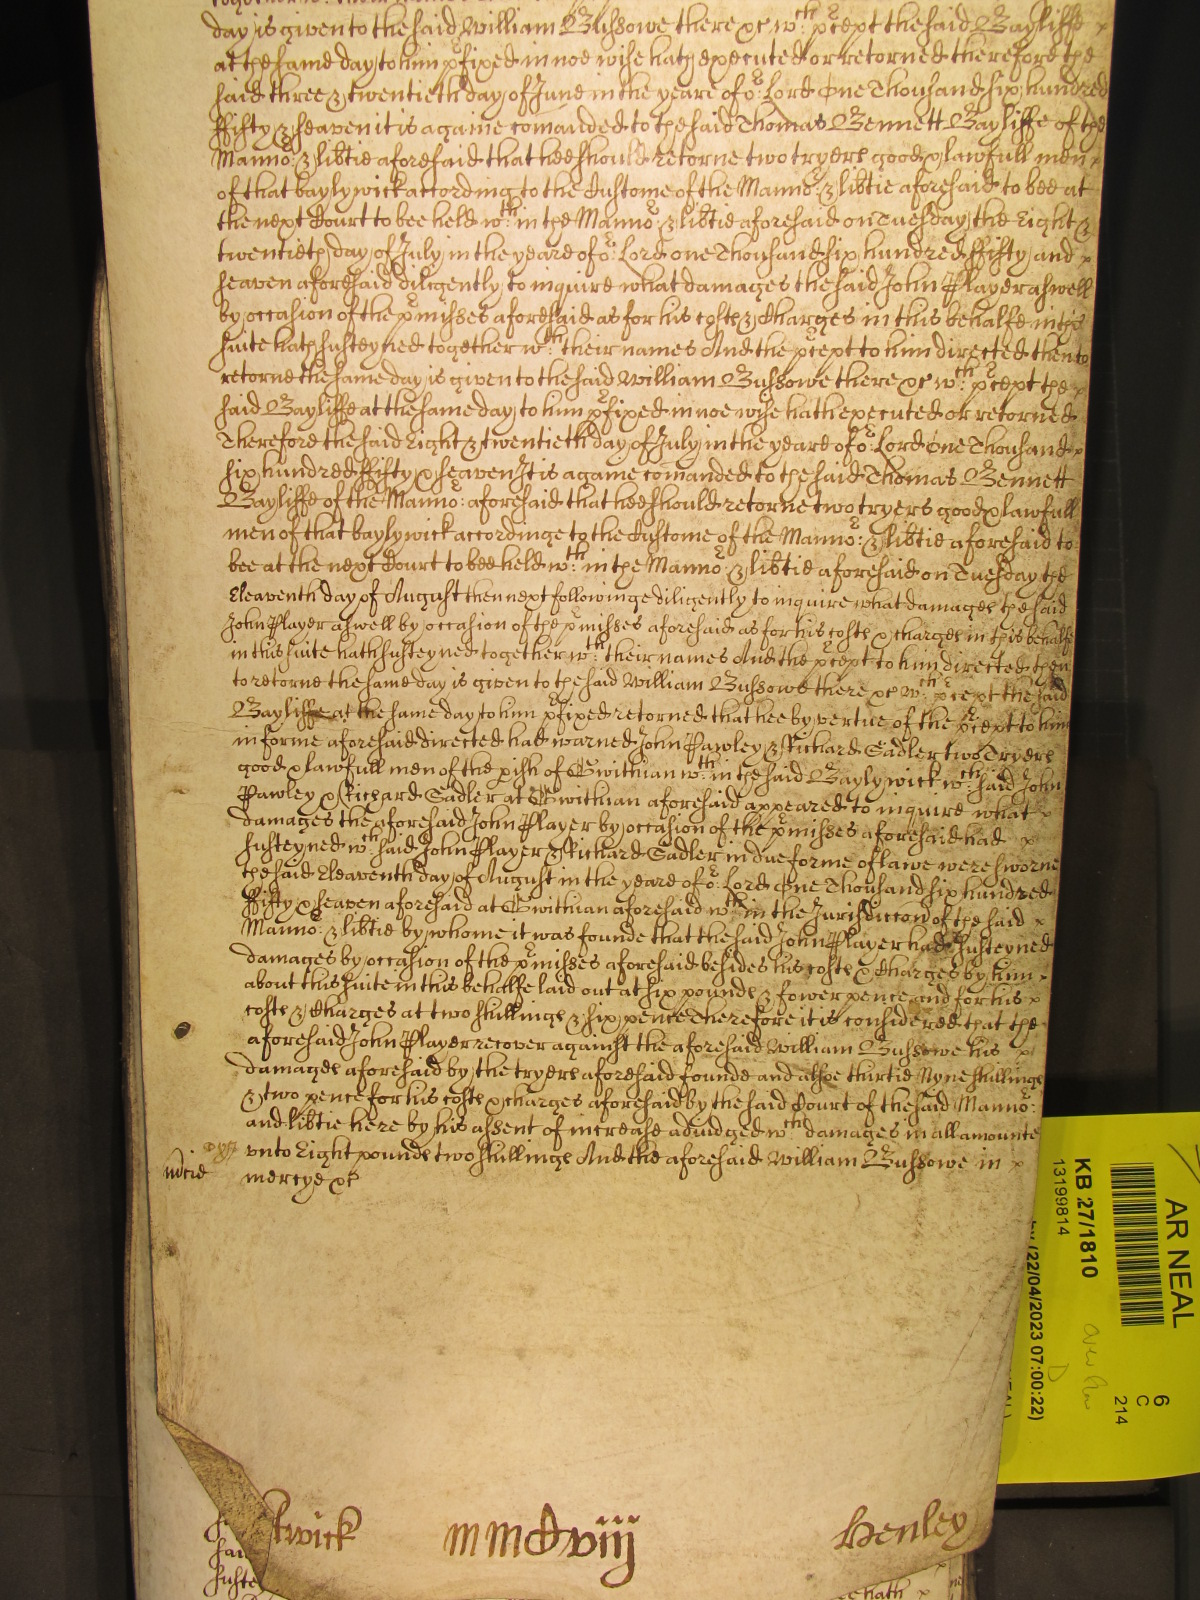 day is given to the said William Bussowe there &c wth: p̲cept the said Bayliffe
at the same day to him p̲fixed in noe wise hath executed or retorned therefore the
said three & twentieth day of June in the yeare of or: Lord One Thousand six hundred
ffifty & seaven it is againe comanded to the said Thomas Bennett Bayliffe of the
Mannor: & lib̃tie aforesaid that hee should retorne two tryers good & lawfull men
of that baylywick according to the Custome of the Mannor: & lib̃tie aforesaid to bee at
the next Court to bee held wth: in the Mannor: & lib̃tie aforesaid on Tuesday the Eight &
twentieth day of July in the yeare of or: Lord one Thousand six hundred ffifty and
seaven aforesaid diligently to inquire what damages the said John Player aswell
by occasion of the p̲misses aforesaid as for his costs & Charges in this behalfe in the
suite hath susteyned together wth: their names And the p̲cept to him directed then to
retorne the same day is given to the said William Bussowe there &c wth: p̲cept the
said Bayliffe at the same day to him p̲fixed in noe wise hath executed or retorned
Therefore the said Eight & twentieth day of July in the yeare of or: Lord One Thousand
six hundred ffifty & seaven It is againe comanded to the said Thomas Bennett
Bayliffe of the Mannor: aforesaid that hee should retorne two tryers good & lawfull
men of that baylywick accordinge to the Custome of the Mannor: & lib̃tie aforesaid to
bee at the next Court to bee held wth: in the Mannor: & lib̃tie aforesaid on Tuesday the
Eleaventh day of August then next followinge diligently to inquire what damages the said
John Player aswell by occasion of the p̲misses aforesaid as for his costs & charges in this behalfe
in this suite hath susteyned together wth: their names And the p̲cept to him directed then
to retorne the same day is given to the said William Bussowe there &c wth: p̲cept the said
Bayliffe at the same day to him p̲fixed retorned that hee by vertue of the p̲cept to him
in forme aforesaid directed had warned John Pawley & Richard Sadler two Tryers
good & lawfull men of the p̲ish of Gwithian wth: in the said Baylywick wch: said John
Pawley & Richard Sadler at Gwithian aforesaid appeared to inquire what
damages the aforesaid John Player by occasion of the p̲misses aforesaid had
susteyned wch: said John Player & Richard Sadler in due forme of lawe were sworne
the said Eleaventh day of August in the yeare of or: Lord One Thousand six hundred
ffifty & seaven aforesaid at Gwithian aforesaid wth: in the Jurisdiccon of the said
Mannor: & lib̃tie by whome it was founde that the said John Player had susteyned
damages by occasion of the p̲misses aforesaid besides his costs & Charges by him
about this suite in this behalfe laid out at six pounds & fower pence and for his
costs & Charges at two shillings & six pence Therefore it is considered that the
aforesaid John Player recover against the aforesaid William Bussowe his
damages aforesaid by the tryers aforesaid founde and alsoe thirtie Nyne shillings
& two pence for his costs & charges aforesaid by the said Court of the said Mannor:
and lib̃tie here by his assent of increase adiudged wch: damages in all amounte
vnto Eight pounds two shillings And the aforesaid William Bussowe in
mercye &c
twick MMDviij Henley
AR NEAL
KB 27/1810
13199814
(22/04/2023 07:00:22)
6
C
214